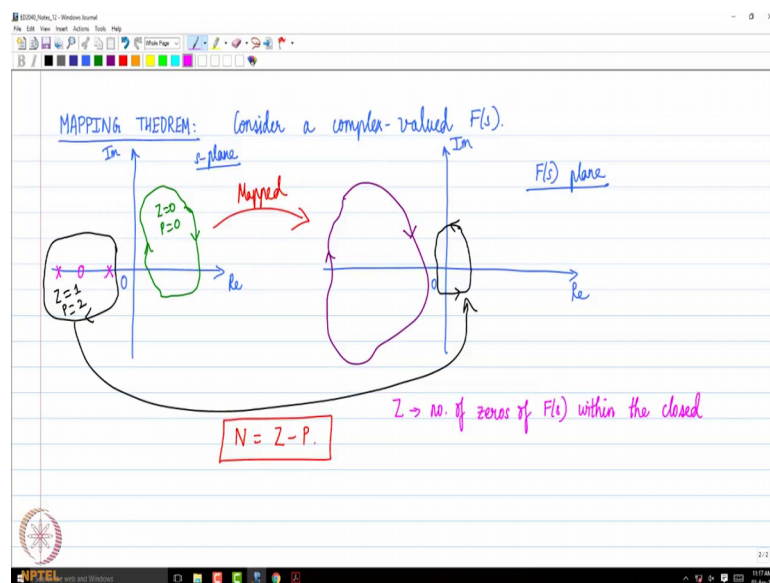 ED2040_Notes_12 - Windows Journal
File Edit View Insert Actions Tools Help
Whole Page
B I
MAPPING THEOREM: Consider a complex-valued F(s).
Im
s-plane
Im
F(s) plane
Mapped
Z=0
P=0
0
Re
0
Re
Z=1
P=2
Z → no. of zeros of F(s) within the closed
N = Z - P.
2/2
NPTEL
web and Windows
11:17 AM